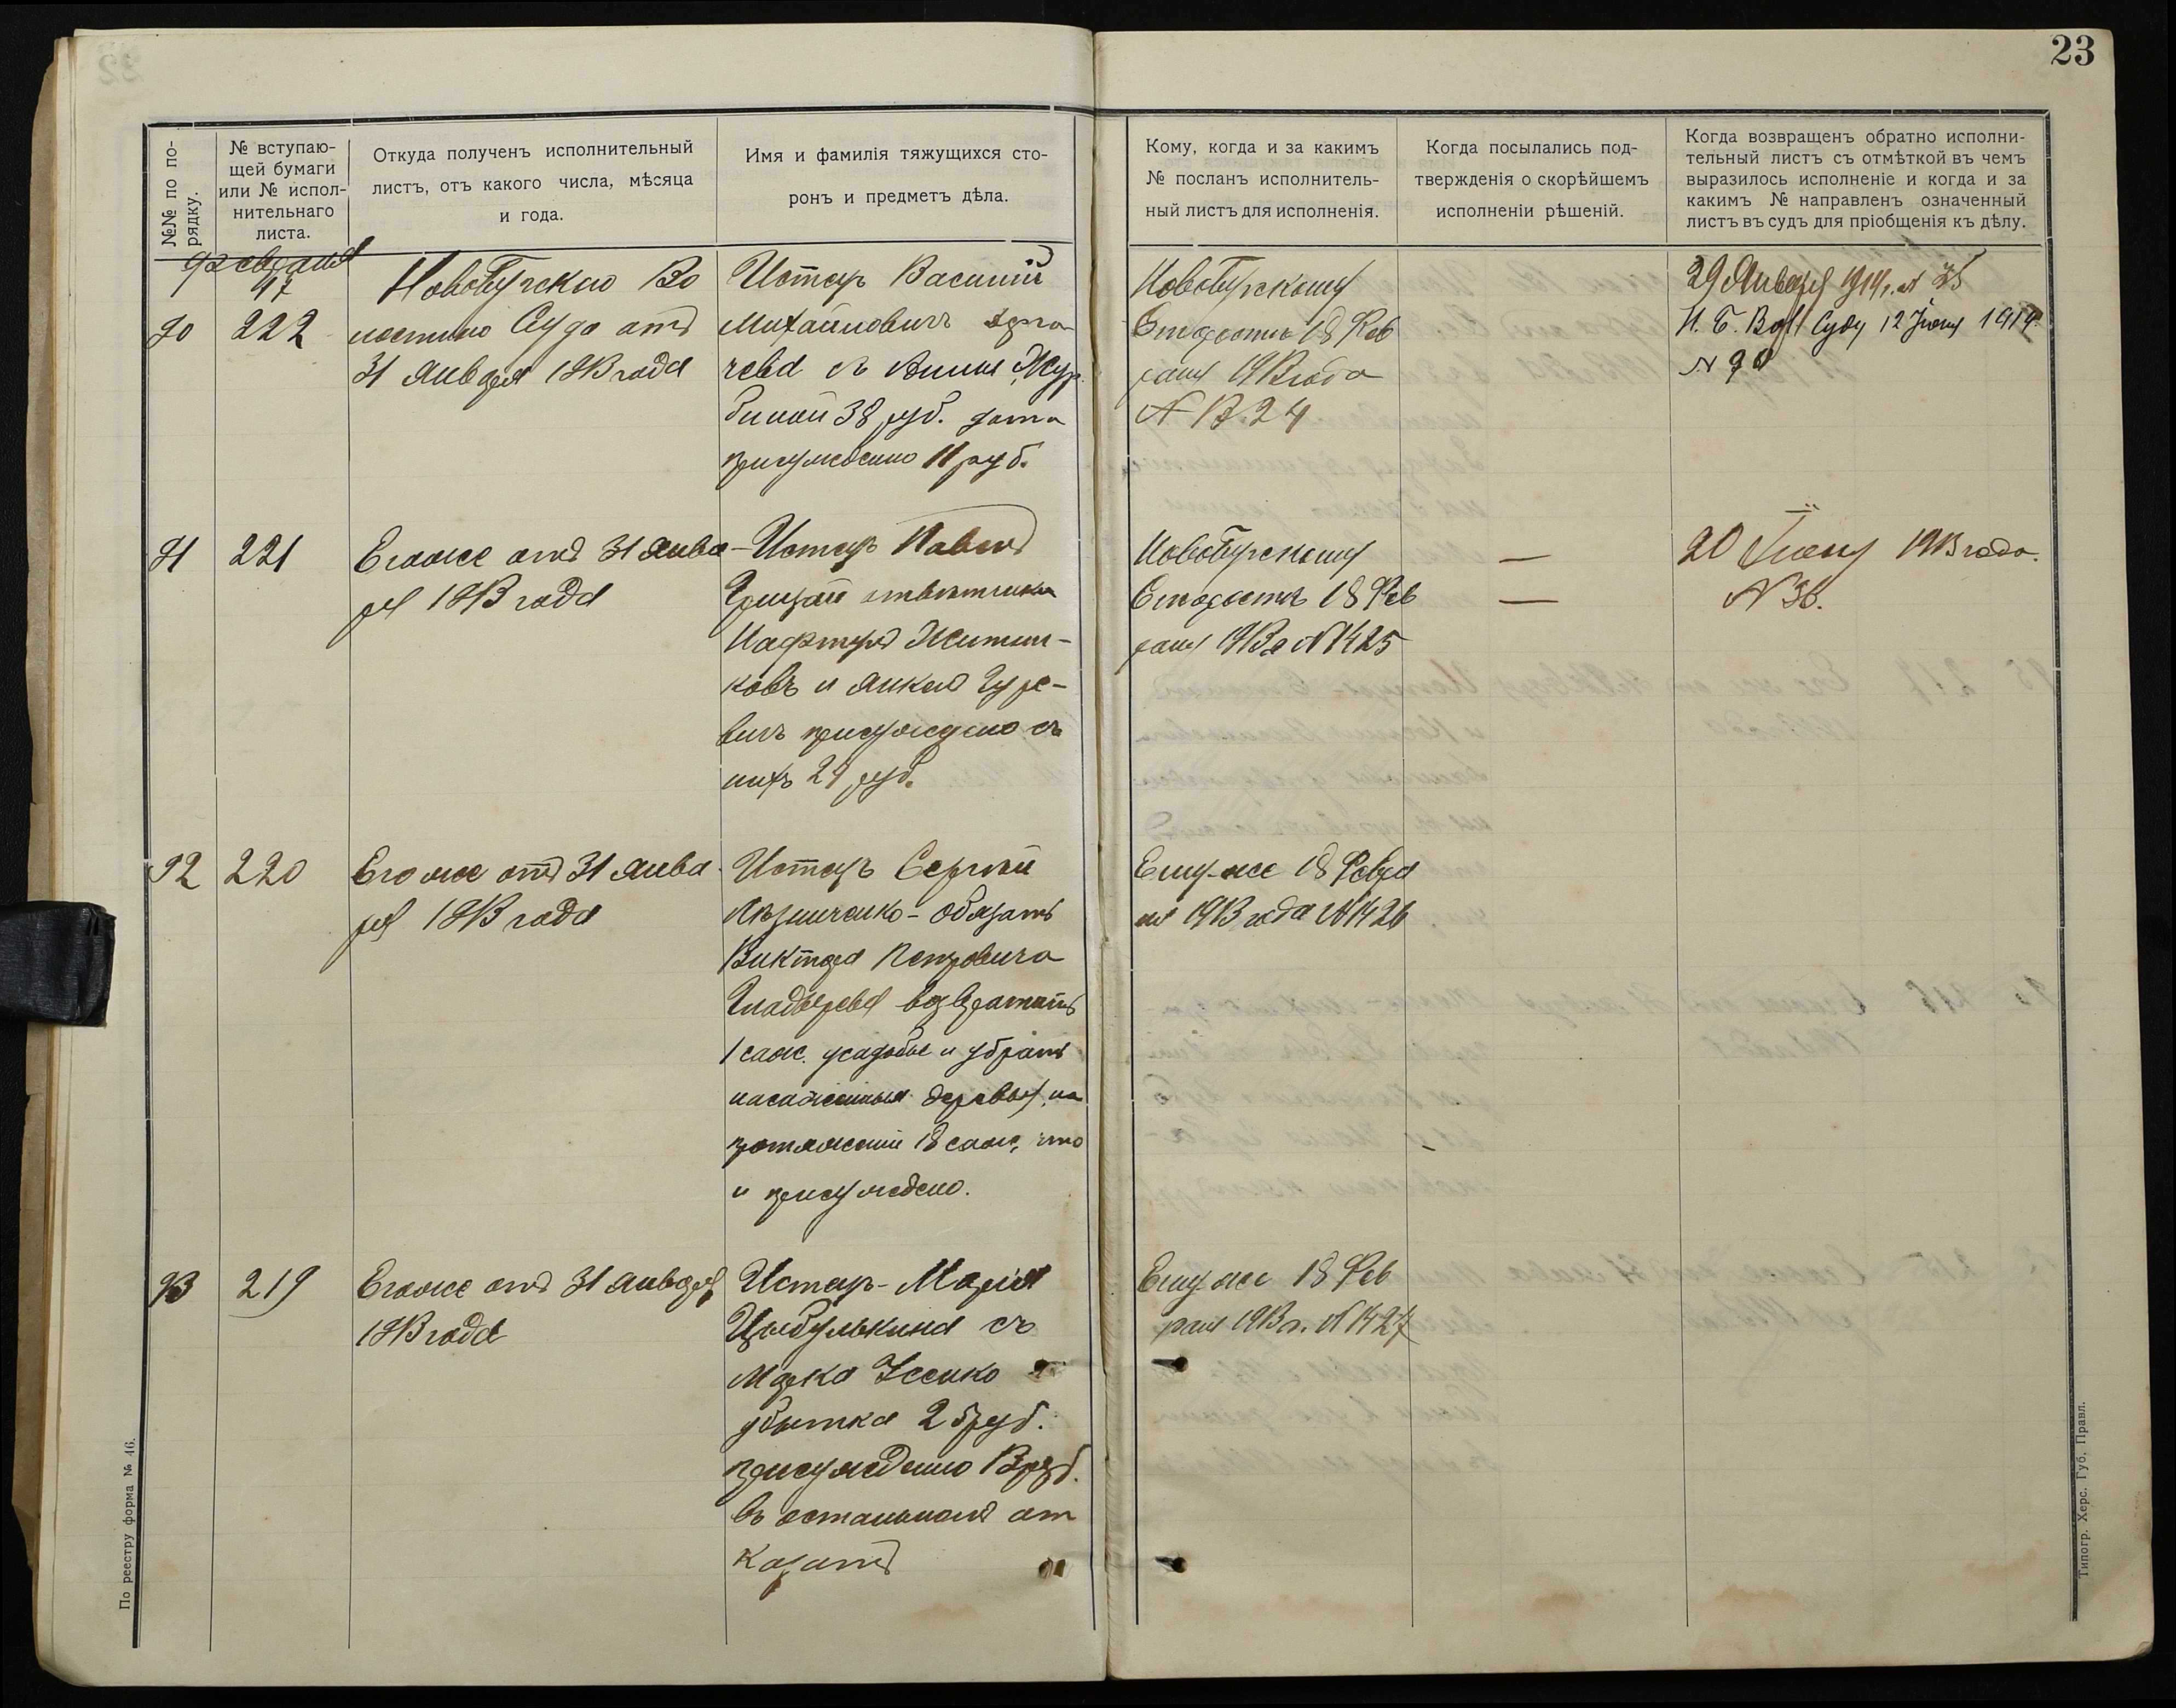 23
№№ по по-
рядку.
№ вступаю-
щей бумаги
или № испол-
нительнаго
листа.
Откуда полученъ исполнительный
листъ, отъ какого числа, мѣсяца
и года.
Имя и фамилія тяжущихся сто-
ронъ и предметъ дѣла.
Кому, когда и за какимъ
№ посланъ исполнитель-
ный листъ для исполненія.
Когда посылались под-
твержденія о скорѣйшемъ
исполненіи рѣшеній.
Когда возвращенъ обратно исполни-
тельный листъ съ отмѣткой въ чемъ
выразилось исполненіе и когда и за
какимъ № направленъ означенный
листъ въ судъ для пріобщенія къ дѣлу.
февраля
17
90
222
Новобугскаго Во
лостного Суда отъ
31 Января 1913 года
Истецъ Василій
Михайловичъ
съ Анны Жур
биной 38 руб. долга
присуждено 11 руб.
Новобугскому
Старостѣ 18 Фев
раля 1913 года
29 Января 1914 г. №
Н. Б. Вол. Суду 12 Іюня 1914
91
221
Егоже отъ 31 Янва
ря 1913 года
Истецъ Павелъ
отвѣтчики
ковъ и Янкель Гуре-
вичъ присуждено съ
нихъ 29 руб.
Новобугскому
Старостѣ 18 Фев
раля 1913 г. № 1425
—
—
20 1913 года.
№ 36.
92
220
Егоже отъ 31 Янва
ря 1913 года
Истецъ Сергѣй
обязать
Виктора Петровича
возвратить
1 саж. усадьбы и убрать
насаженныя деревья, на
протяженіи 18 саж, что
и присуждено.
Ему-же 18 Февра
ля 1913 года № 1426
93
219
Егоже отъ 31 Января
1913 года
Истецъ - Марія
Цыбулькина съ
Марка Усенко
убытка 25 руб.
присуждено 13 руб.
въ остальномъ от
казать
Ему-же 18 Фев
раля 1913 г. № 1427
По реестру форма № 46.
Типогр. Херс. Губ. Правл.